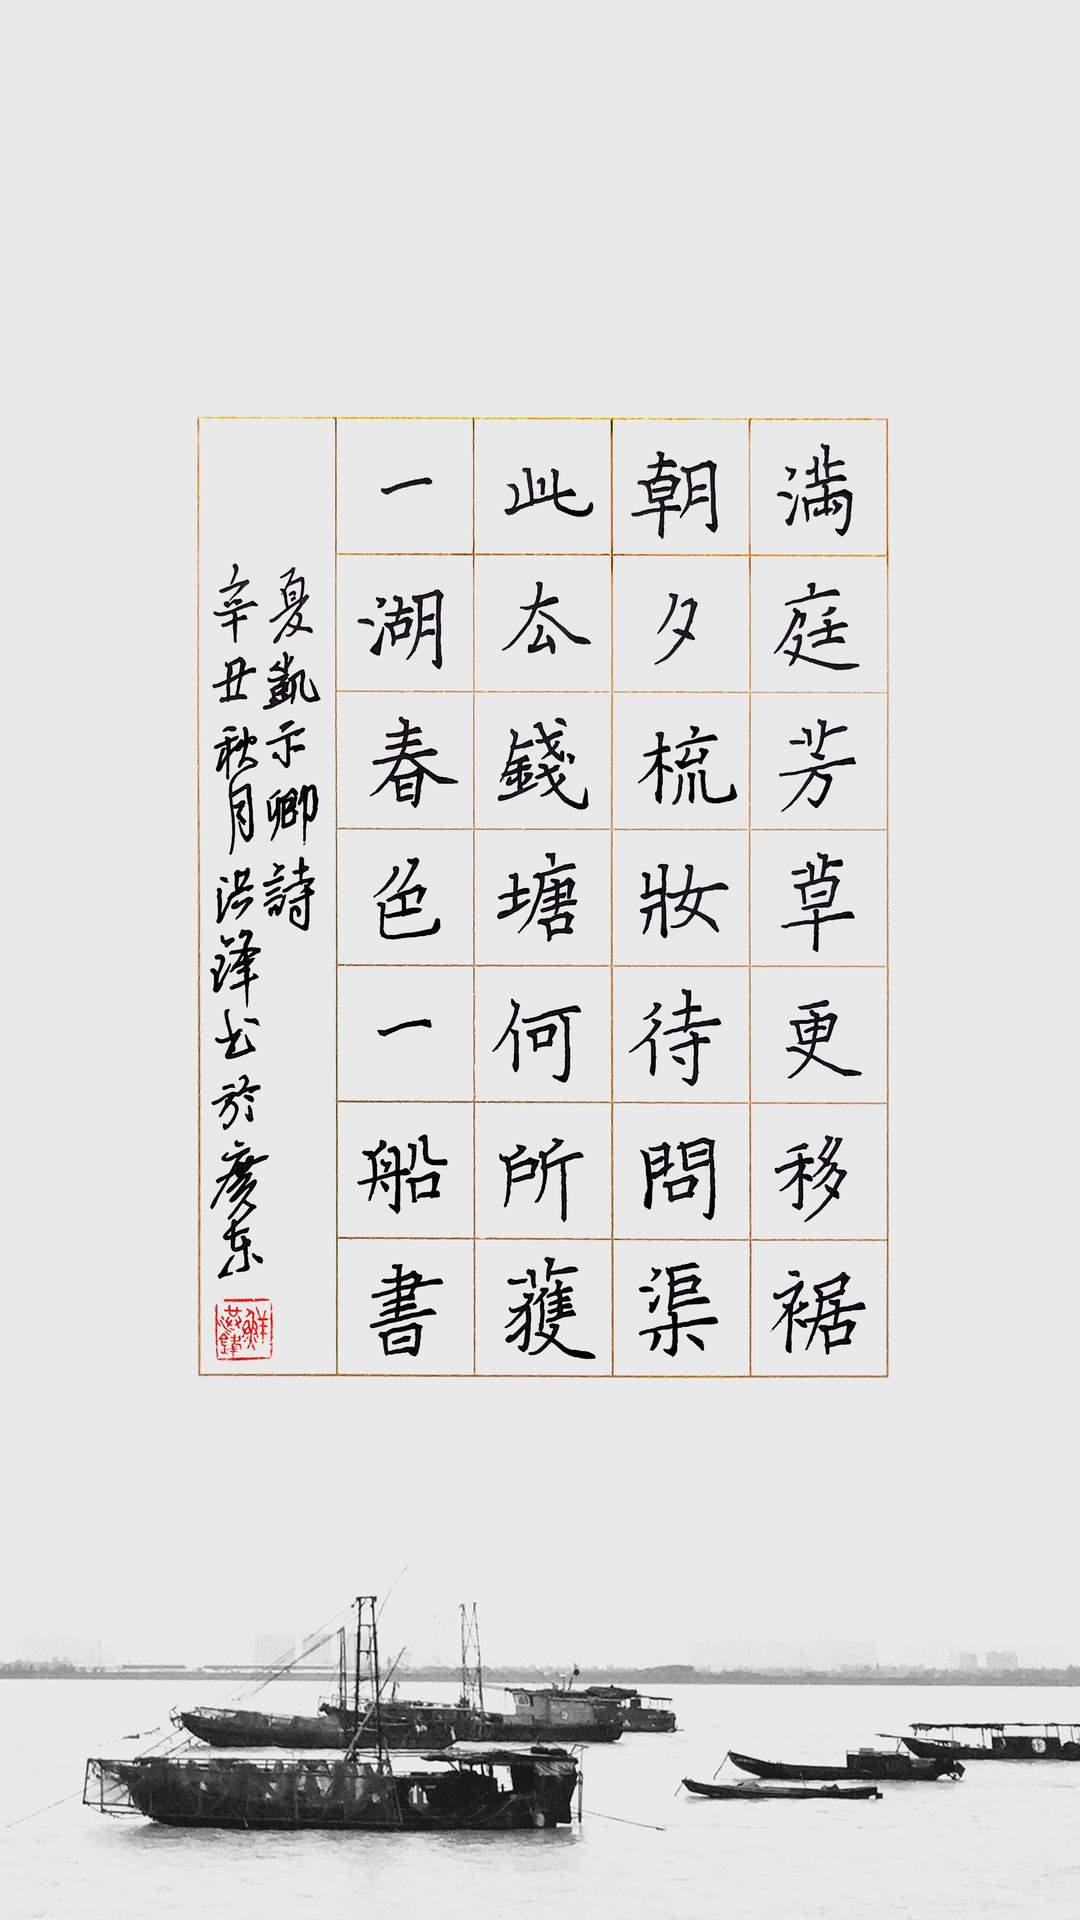 滿庭芳草更移裾
朝夕梳妝待問渠
此去錢塘何所蒦
一湖春色一船書
夏凱示卿詩
辛丑秋月洪鋒书於廣东